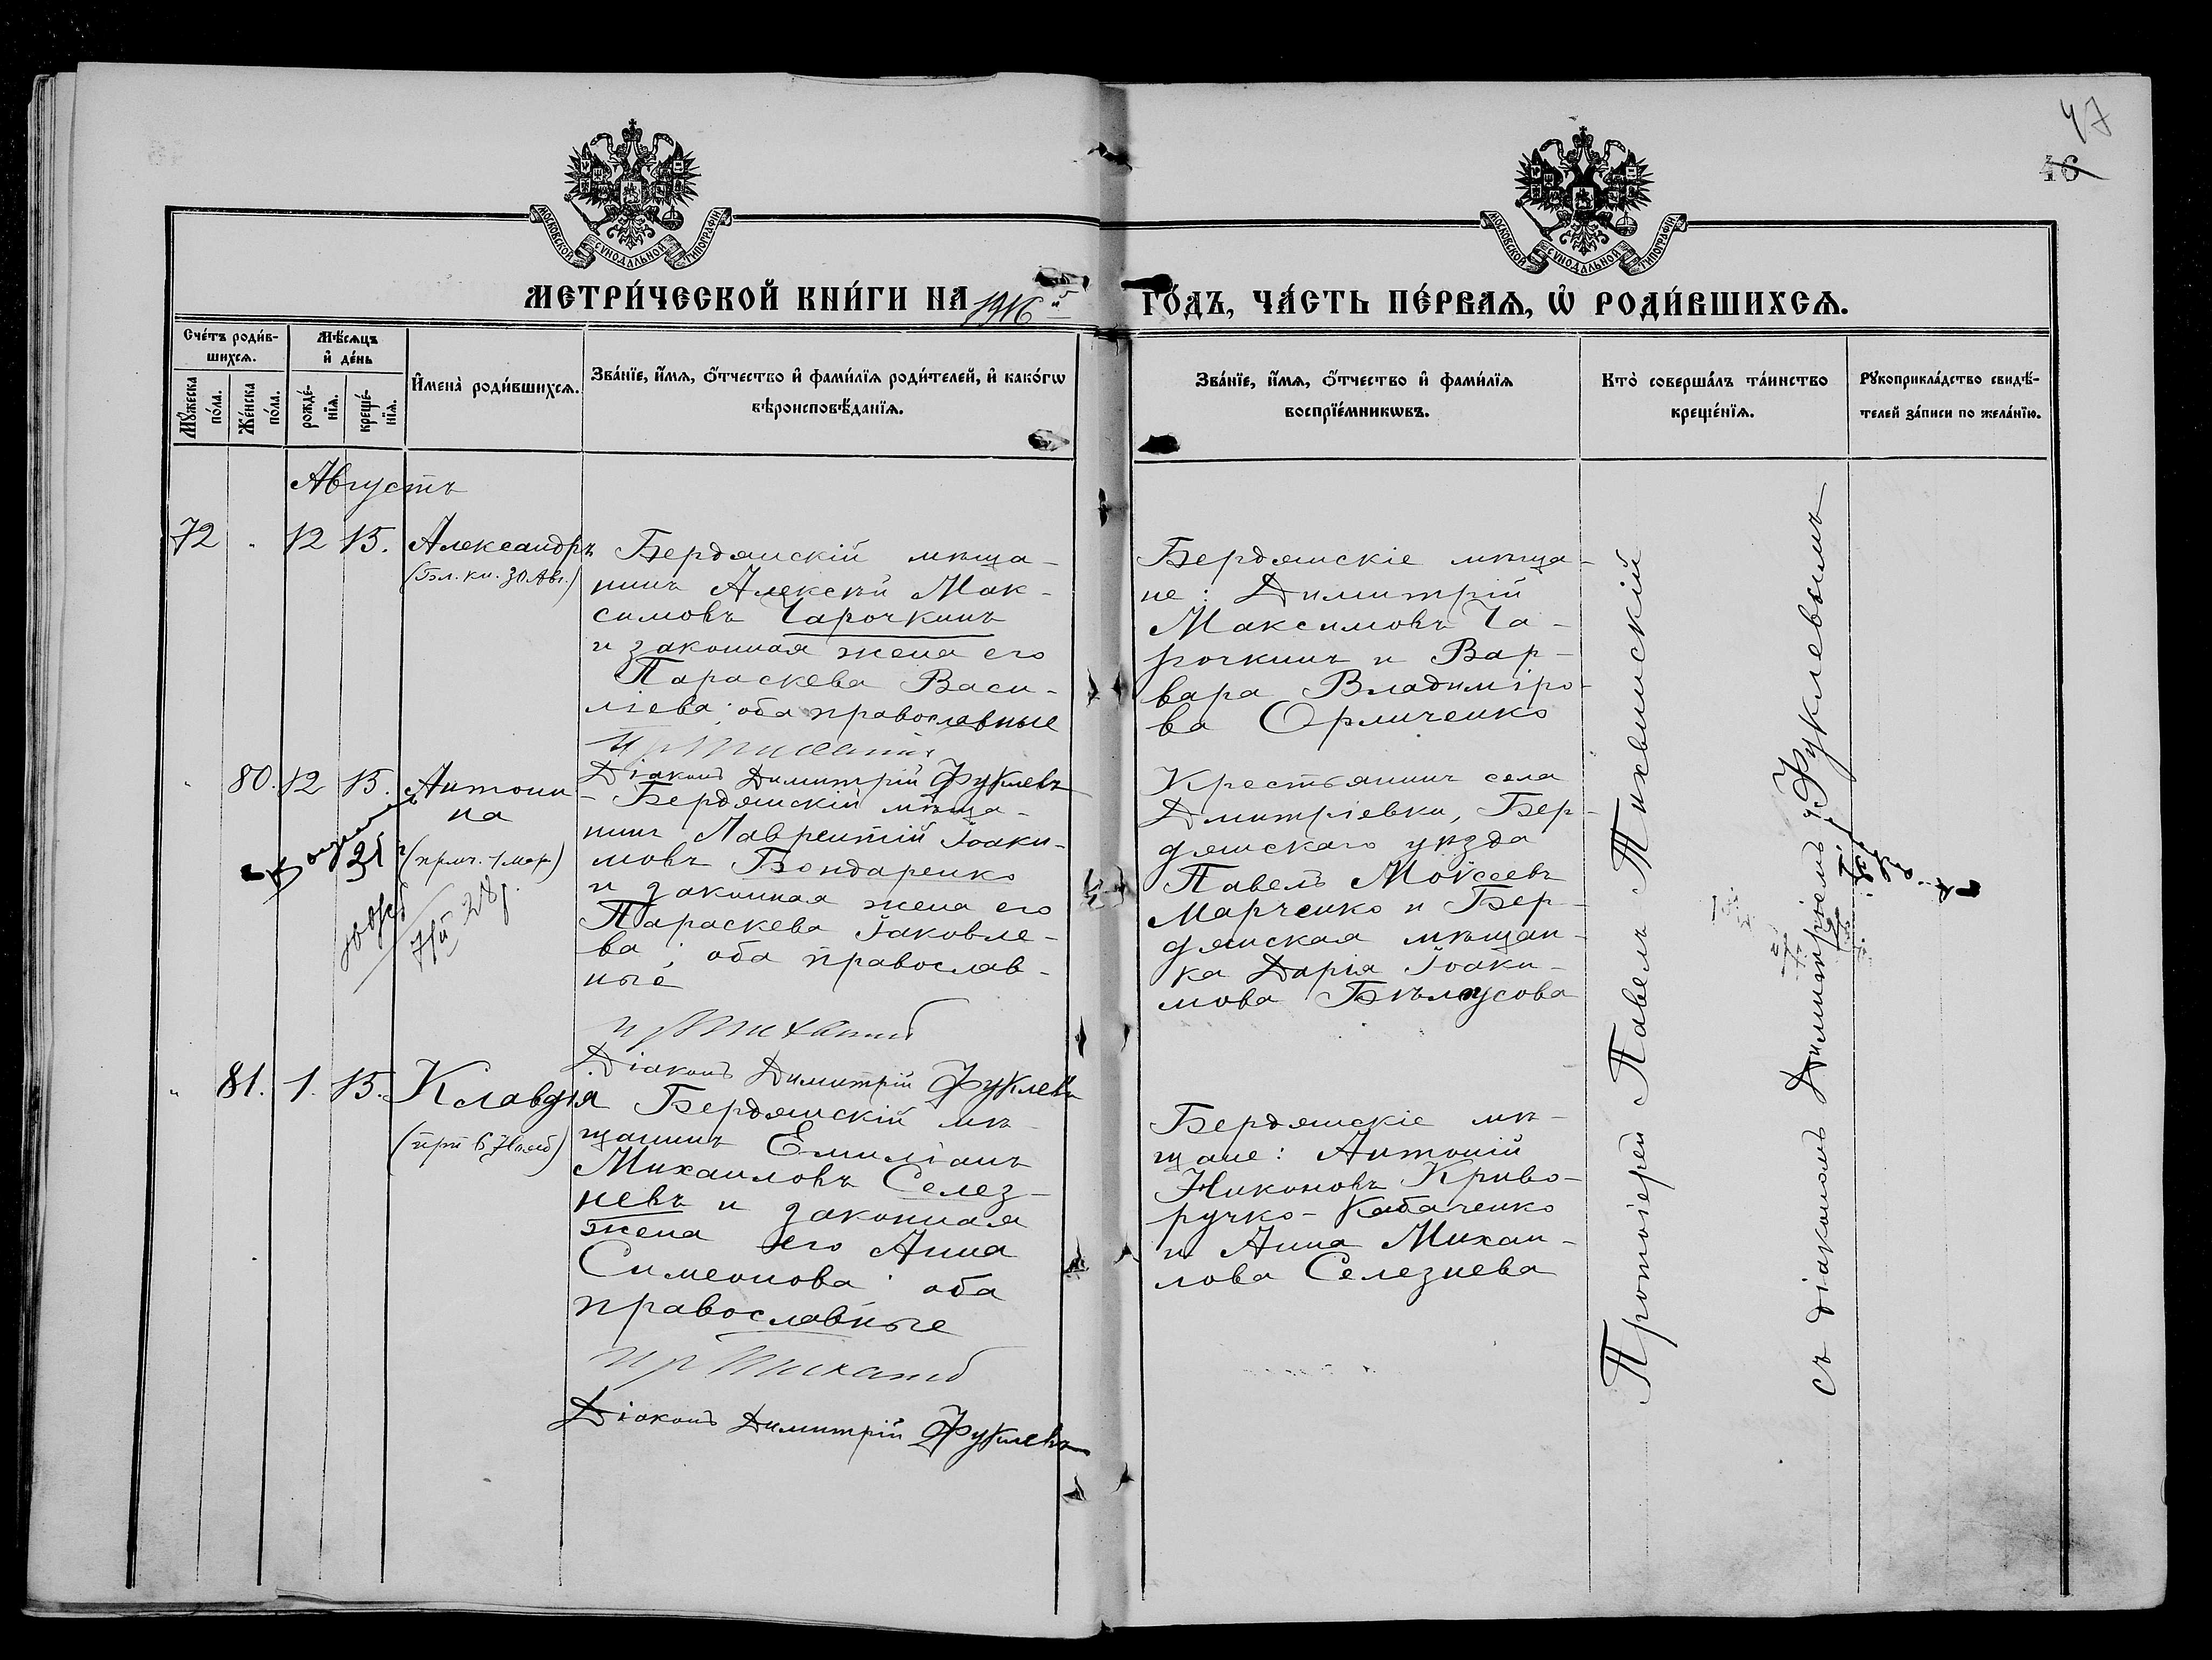 47
46
МОСКОВСКОЙ СѴНОДАЛЬНОЙ ТИПОГРАФІИ
МОСКОВСКОЙ СѴНОДАЛЬНОЙ ТИПОГРАФІИ
МЕТРИ́ЧЕСКОЙ КНИ́ГИ НА 1916й
ГО́ДЪ, ЧА́СТЬ ПЕ́РВАѦ, Ѽ РОДИ́ВШИХСѦ.
Сче́тъ роди́в-
шихсѧ.
Мꙋ́жеска
по́ла.
Же́нска
по́ла.
Мѣ́сѧцъ
и҆ де́нь
рожде́-
нїѧ.
креще́-
нїѧ.
И҆мена̀ роди́вшихсѧ.
Зва́нїе, и҆́мѧ, ѻ҆́тчество и҆ фами́лїѧ роди́телей, и҆ како́гѡ
вѣроисповѣ́данїѧ.
Зва́нїе, и҆́мѧ, ѻ҆́тчество и҆ фами́лїѧ
воспрїе́мникѡвъ.
Кто̀ соверша́лъ та́инство
креще́нїѧ.
Рꙋкоприкла́дство свидѣ́-
телей за́писи по жела́нїю.
Августъ
72 " 12 15. Александръ
(Бл. кн. 30 Авг.)
Бердянскій мѣща-
нинъ Алексѣй Мак-
симовъ Чарочкинъ
и законная жена его
Параскева Васи-
ліева; оба православные
Діаконъ Димитрій Фуклевъ
Бердянскіе мѣща-
не: Димитрій
Максимовъ Ча-
рочкинъ и Вар-
вара Владиміро-
ва Орличенко
" 80. 12 15. Антони
на
(прмч. 1 мар)
21
28 г.
Бердянскій мѣща-
нинъ Лаврентій Іоаки-
мовъ Бондаренко
и законная жена его
Параскева Іаковле-
ва; оба православ-
ные
Діаконъ Димитрій Фуклевъ
Крестьянинъ села
Дмитріевки, Бер-
дянскаго уѣзда
Павелъ Моѵсеевъ
Марченко и Бер-
дянская мѣщан-
ка Дарія Іоаки-
мова Бѣлоусова
" 81. 1. 15. Клавдія
Бердянскій мѣ-
щанинъ Емиліанъ
Михаиловъ Селез-
невъ и законная
жена его Анна
Симеонова; оба
православные
Діаконъ Димитрій Фуклевъ
Бердянскіе мѣ-
щане: Антоній
Никоновъ Криво-
ручко-Кабаченко
и Анна Михаи-
лова Селезнева
Протоіерей Павелъ Тихвинскій
съ діакономъ Димитріемъ Фуклевымъ